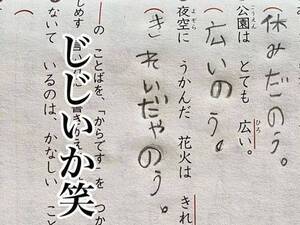 休みだのう。
公園は とても 広い。
こうえん
ひろ
広いのう。
夜空に うかんだ 花火は きれ
よぞら
きれいだなのう。
の ことばを、「からです」を つか
ないて いるのは、かなしい こと
じじいか笑